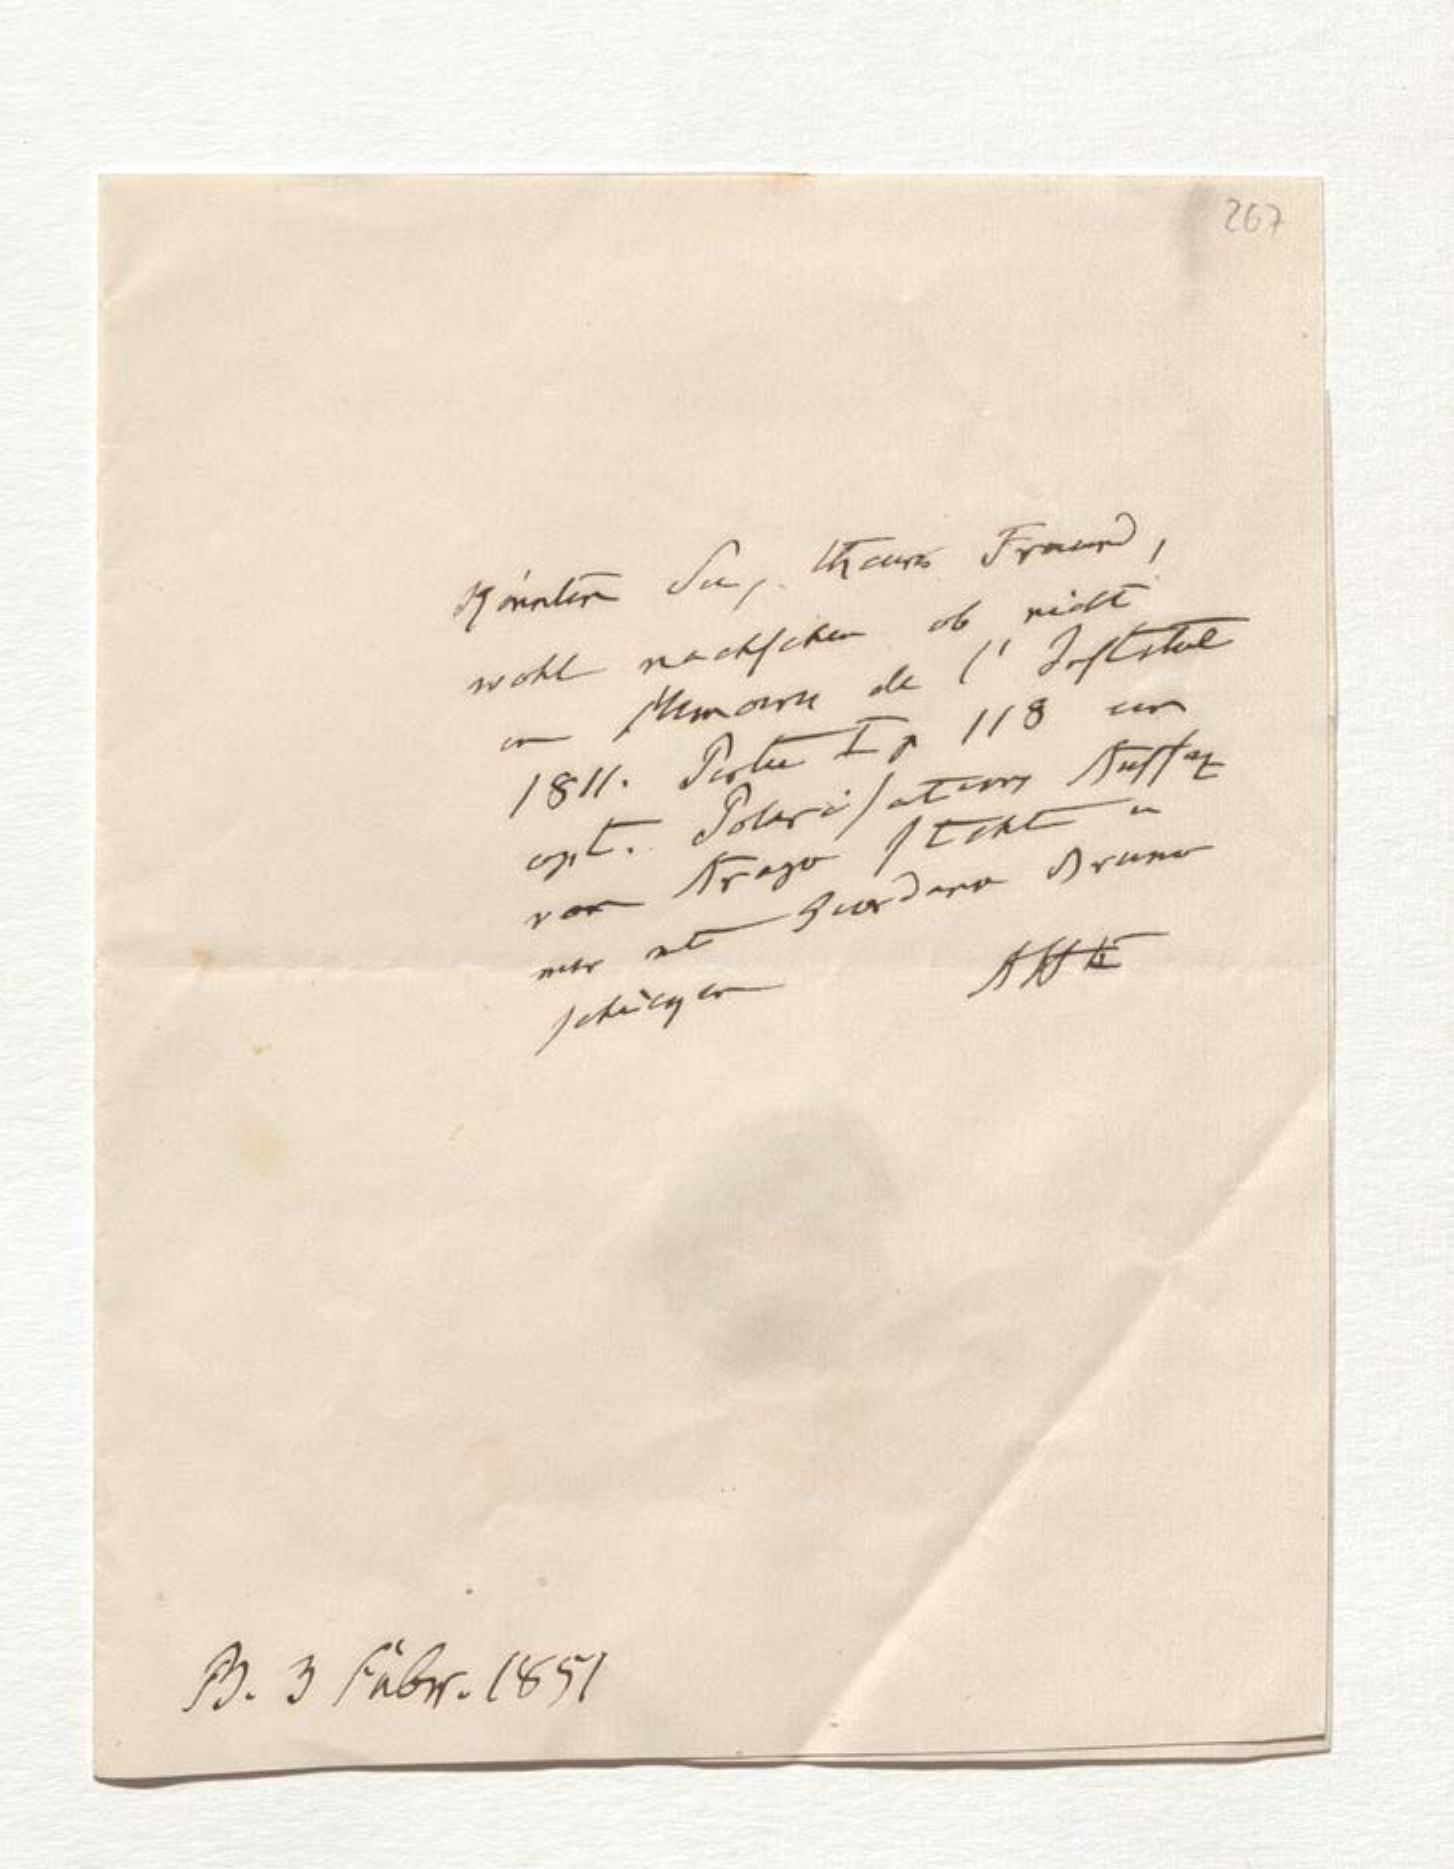 267
Könnten Sie, theurer Freund,
wohl nachsehen ob nicht
in Memoires de l'Institut
1811. Partie I p 118 ein
opt. Polarisations Aufsaz
von Arago steht u
mir mit Giordano Bruno
schicken AHt
B. 3 Febr. 1851